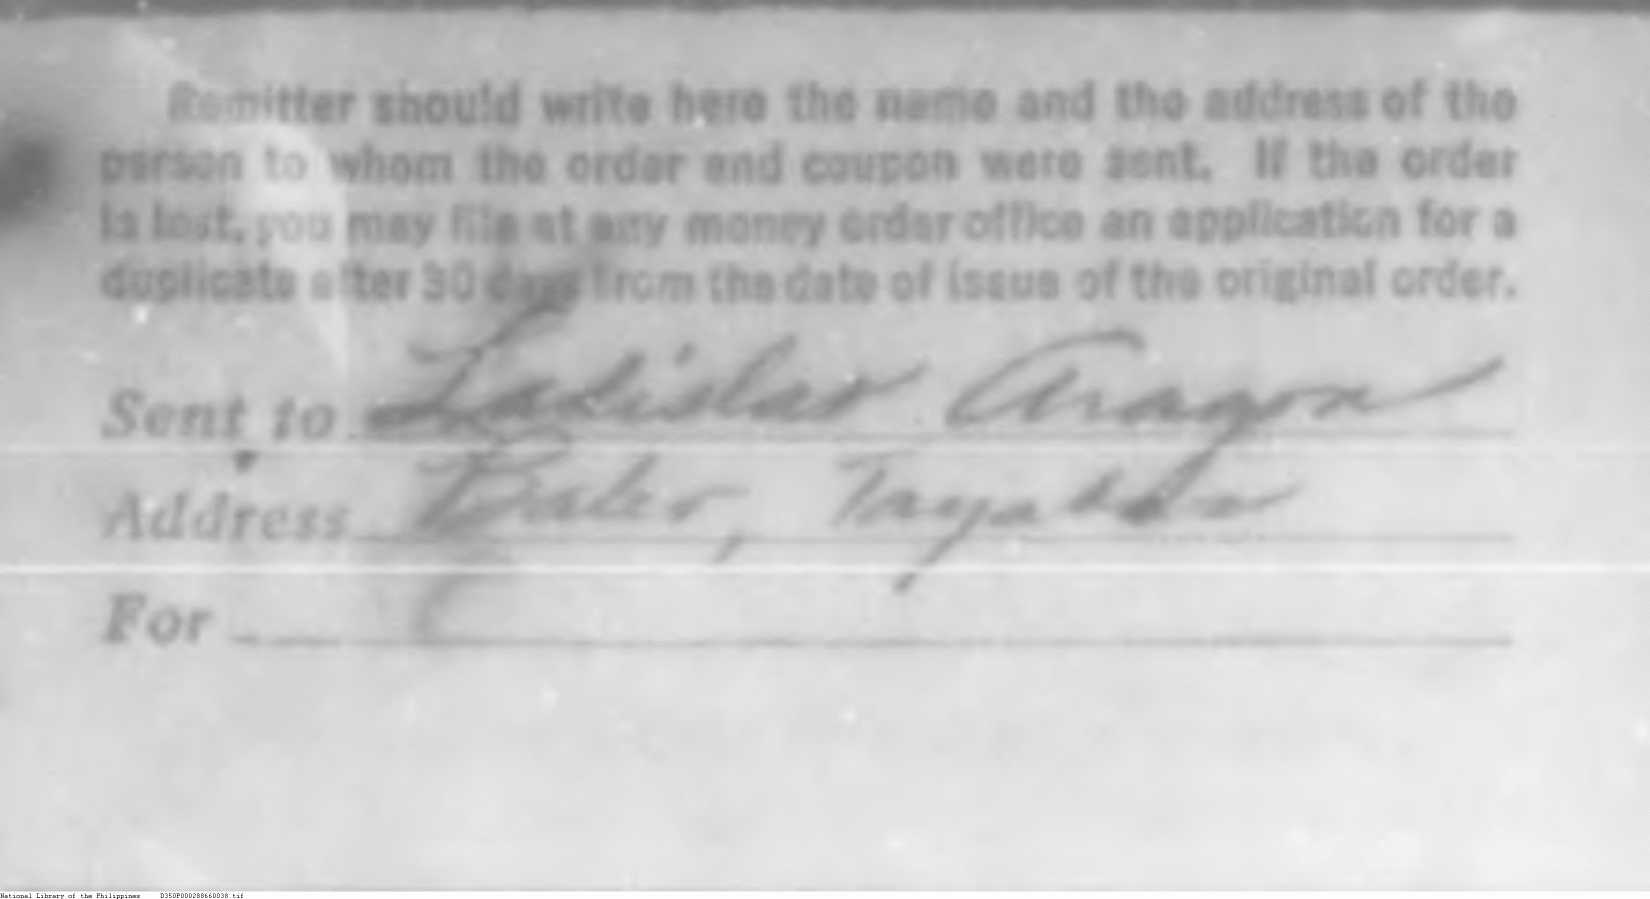 Remitter should write here the name and the address of the
person to whom the order and coupon were sent. If the order
is lost, you may file at any money order office an application for a
duplicate after 30 days from the date of issue of the original order.
Sent to Ladislao Aragon
Address Baler, Tayabas
For
National Library of the Philippines D350P000288660038.tif